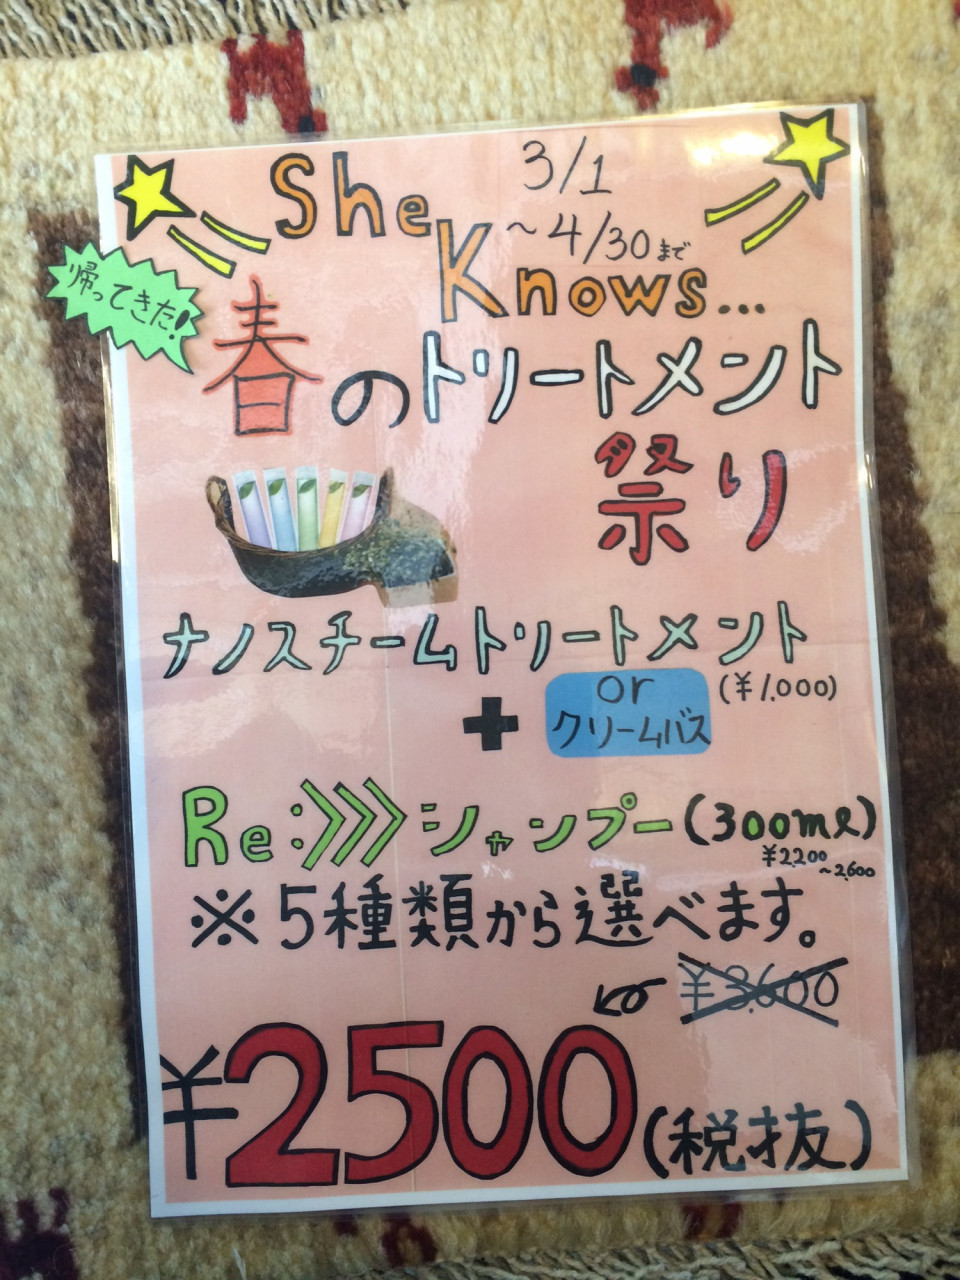 She
3/1
~4/30まで
Knows...
帰ってきた!
春のトリートメント
祭り
ナノスチームトリートメント
(¥1,000)
+
or
クリームバス
Re:》》シャンプー(300ml)
¥2,200
~2,600
※5種類から選べます。
¥3,600
¥2500(税抜)